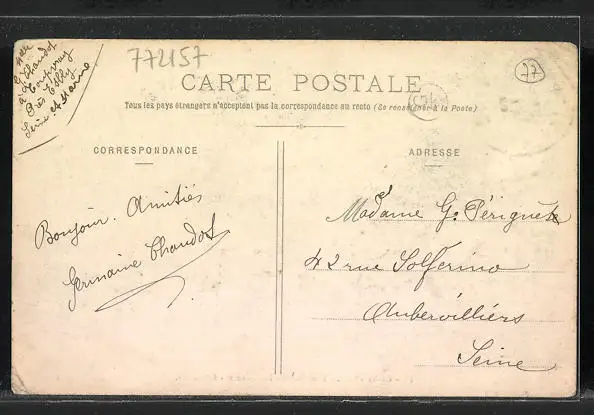 Mlle
G. Chaudot
à Compray
Près Cély
Seine et Marne
772157
77
CARTE POSTALE
Tous les pays étrangers n'acceptent pas la correspondance au recto (Se renseigner à la Poste)
CORRESPONDANCE
Bonjour. Amitiés
Germaine Chaudot
ADRESSE
Madame G. Pérignet
42 rue Solferino
Aubervilliers
Seine